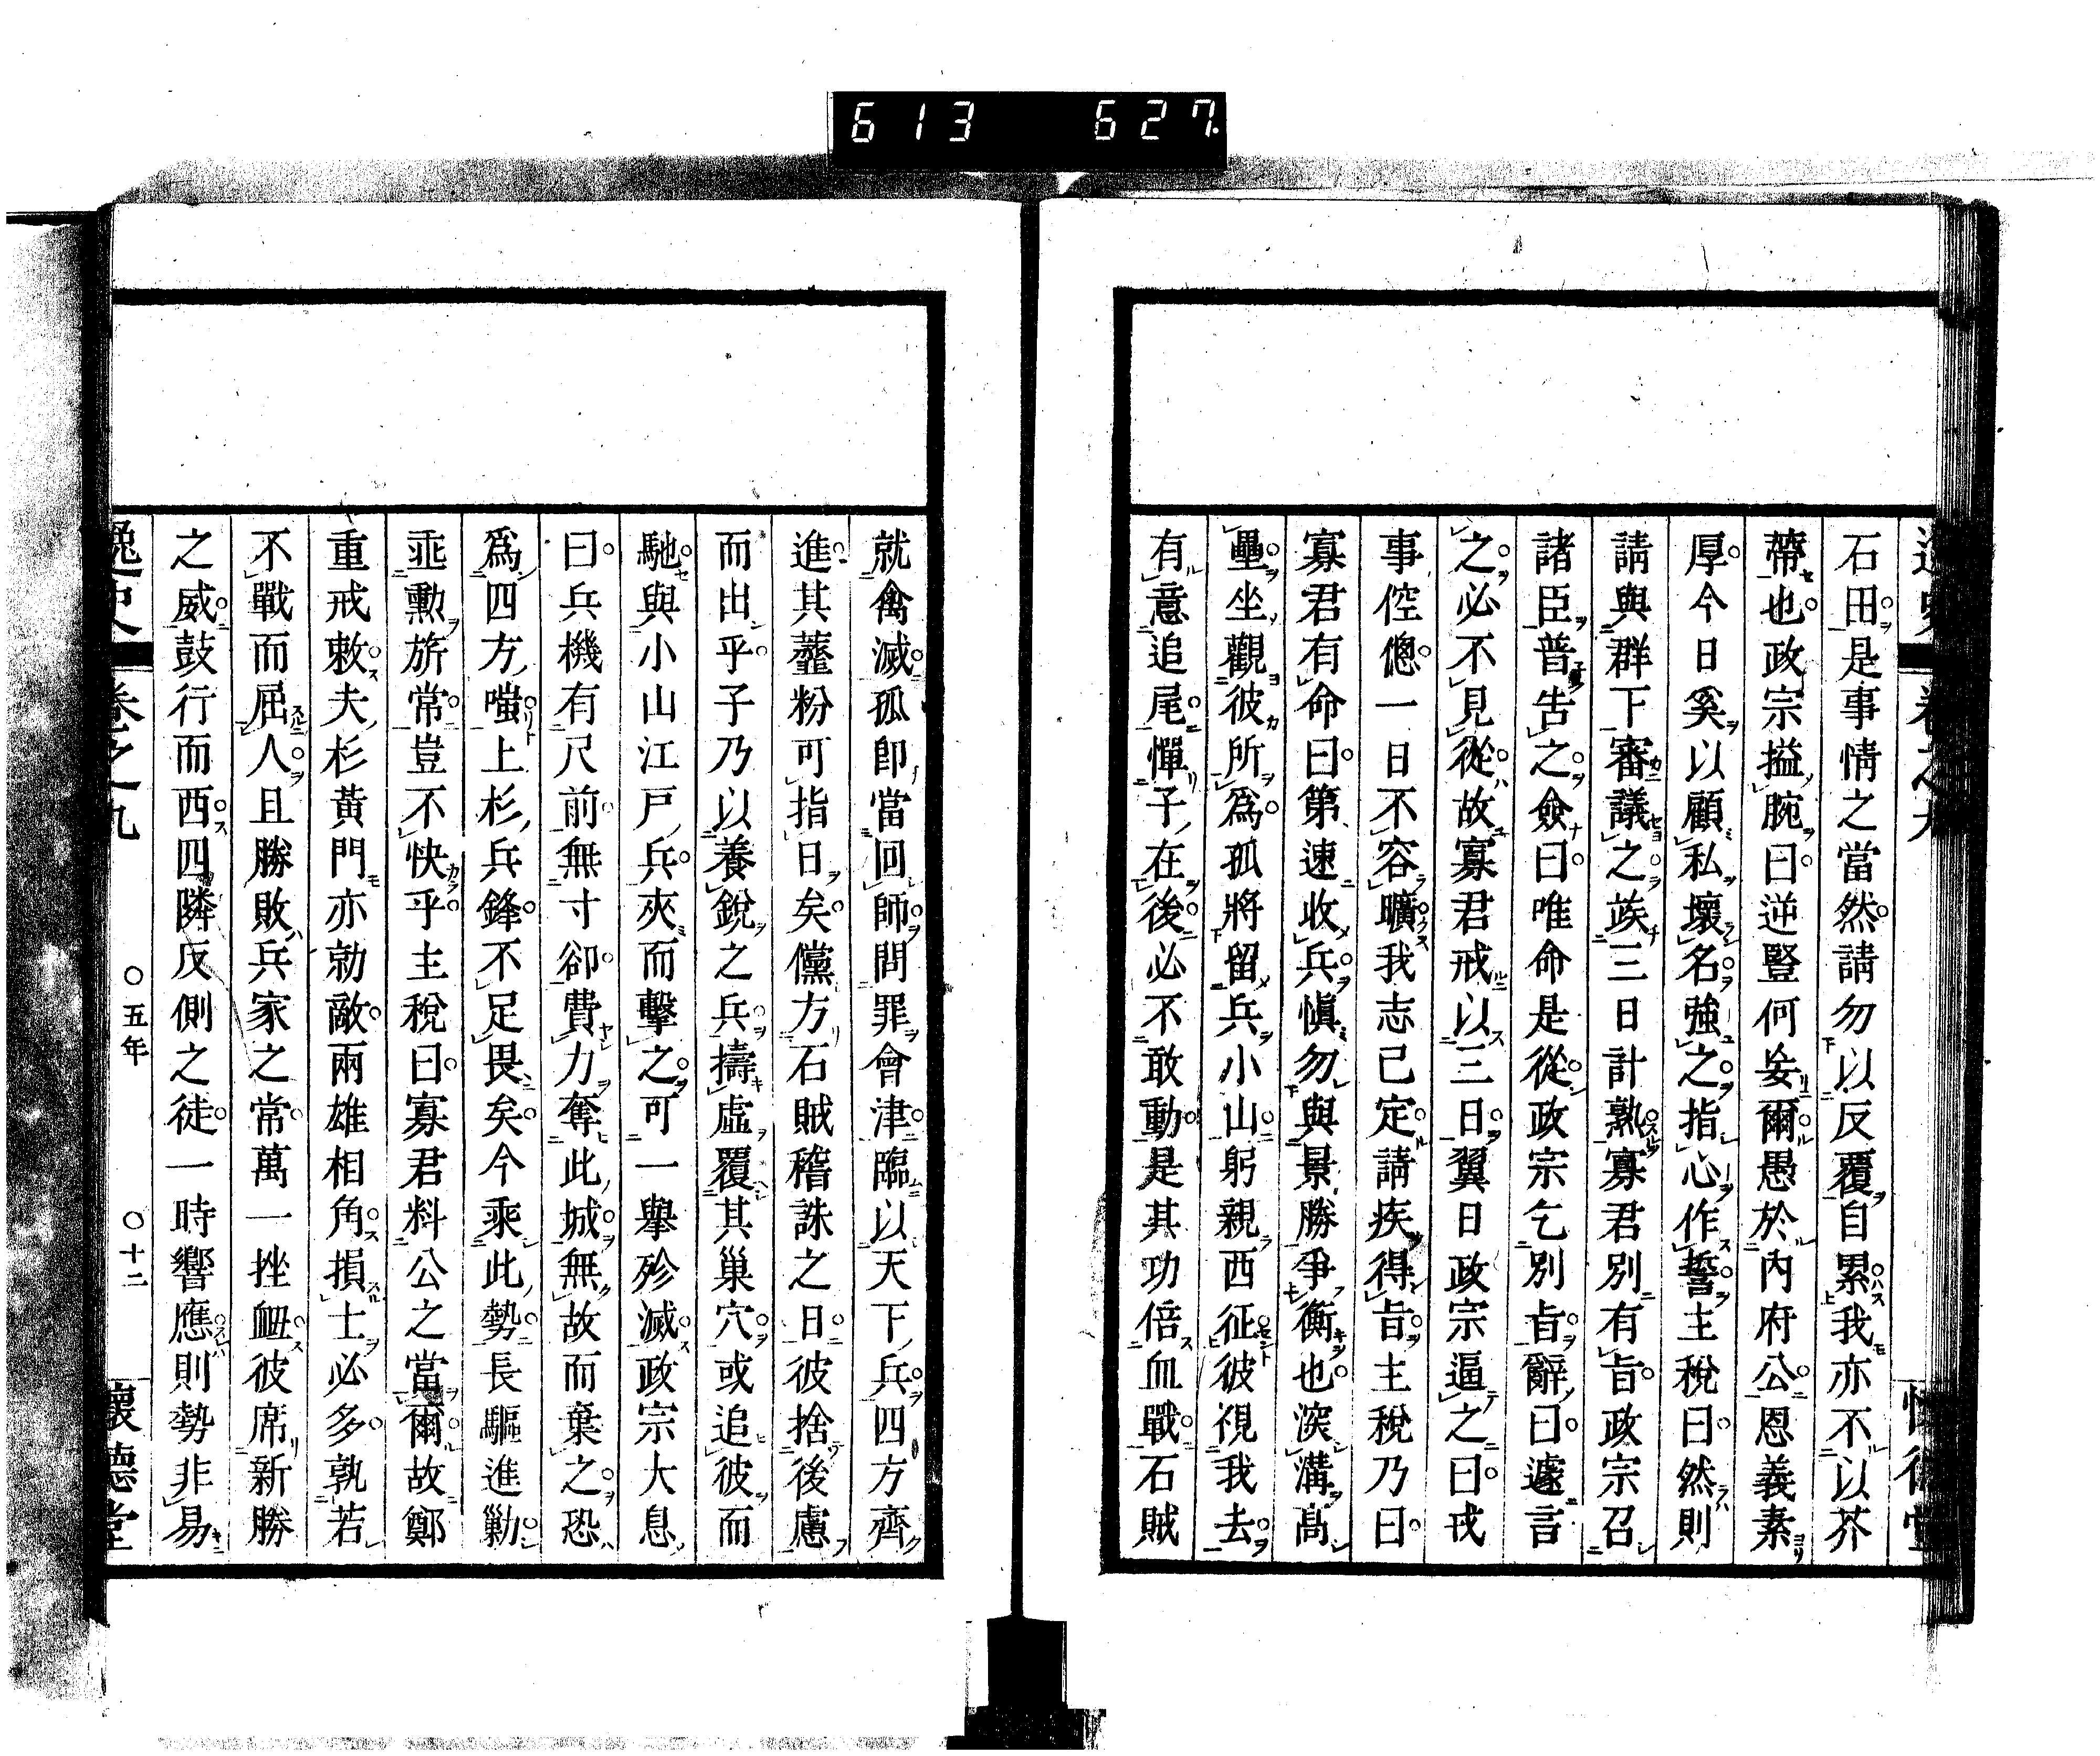 613 627
逸史 卷之九 懷德堂
石田是事情之當然請勿以反覆自累我亦不以芥
蔕也政宗搤腕曰逆豎何妄爾愚於內府公恩義素
厚今日奚以顧私壞名強之指心作誓主稅曰然則
請與群下審議之竢三日計熟寡君別有旨政宗召
諸臣普告之僉曰唯命是從政宗乞別旨辭曰遽言
之必不見從故寡君戒以三日翼日政宗逼之曰戎
事倥傯一日不容曠我志已定請疾得旨主稅乃曰
寡君有命曰第速收兵愼勿與景勝爭衡也深溝高
壘坐觀彼所爲孤將留兵小山躬親西征彼視我去
有意追尾憚子在後必不敢動是其功倍血戰石賊
就禽滅孤卽當回師問罪會津臨以天下兵四方齊
進其虀粉可指日矣儻方石賊稽誅之日彼捨後慮
而出乎子乃以養銳之兵擣虛覆其巢穴或追彼而
馳與小山江戸兵夾而擊之可一擧殄滅政宗大息
曰兵機有尺前無寸卻費力奪此城無故而棄之恐
爲四方嗤上杉兵鋒不足畏矣今乘此勢長驅進勦
乖勳旂常豈不快乎主稅曰寡君料公之當爾故鄭
重戒敕夫杉黃門亦勍敵兩雄相角損士必多孰若
不戰而屈人且勝敗兵家之常萬一挫衂彼席新勝
之威鼓行而西四隣反側之徒一時響應則勢非易
逸史 卷之九 〇五年 〇十二 懷德堂